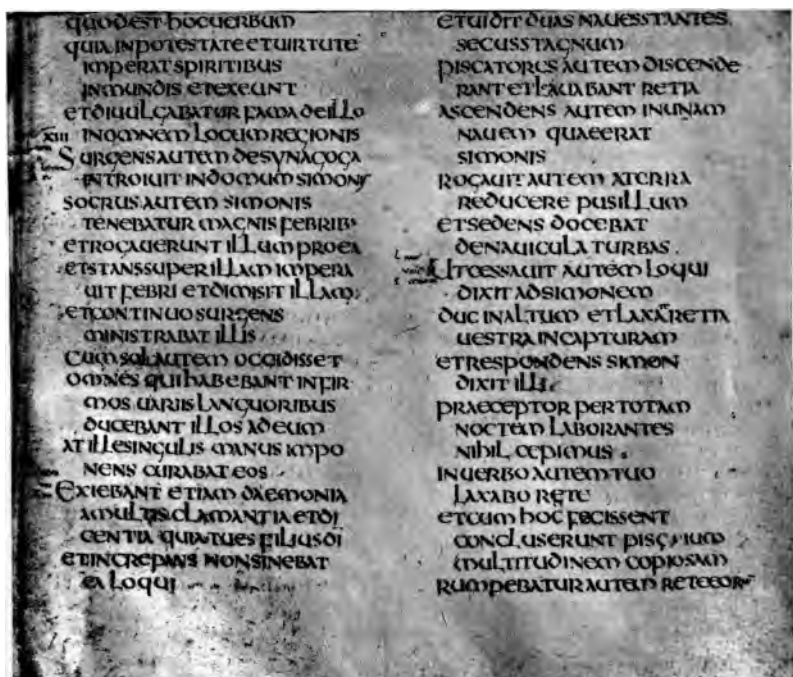 QUODEST HOCUERBUM
QUIA INPOTESTATE ETUIRTUTE
IMPERAT SPIRITIBUS
INMUNDIS ETEXEUNT
ETDIUULGABATUR FAMA DEILLO
INOMNEM LOCUM REGIONIS
XIII
SURGENS AUTEM DESYNAGOGA
INTROIUIT INDOMUM SIMONIS
SOCRUS AUTEM SIMONIS
TENEBATUR MAGNIS FEBRIB
ETROGAUERUNT ILLUM PROEA
ETSTANS SUPER ILLAM IMPERA
UIT FEBRI ETDIMISIT ILLAM
ETCONTINUO SURGENS
MINISTRABAT ILLIS
CUM SOL AUTEM OCCIDISSET
OMNES QUI HABEBANT INFIR
MOS UARIIS LANGUORIBUS
DUCEBANT ILLOS ADEUM
AT ILLE SINGULIS MANUS IMPO
NENS CURABAT EOS
EXIEBANT ETIAM DAEMONIA
A MULTIS CLAMANTIA ETDI
CENTIA QUIA TUES FILIUS DI
ETINCREPANS NONSINEBAT
EA LOQUI
ETUIDIT DUAS NAUES STANTES
SECUS STAGNUM
PISCATORES AUTEM DISCENDE
RANT ETLAUABANT RETIA
ASCENDENS AUTEM INUNAM
NAUEM QUAEERAT
SIMONIS
ROGAUIT AUTEM ATERRA
REDUCERE PUSILLUM
ETSEDENS DOCEBAT
DENAUICULA TURBAS
UTCESSAUIT AUTEM LOQUI
DIXIT ADSIMONEM
DUC INALTUM ETLAXA RETIA
UESTRA INCAPTURAM
ETRESPONDENS SIMON
DIXIT ILLI
PRAECEPTOR PER TOTAM
NOCTEM LABORANTES
NIHIL CEPIMUS
INUERBO AUTEM TUO
LAXABO RETE
ETCUM HOC FECISSENT
CONCLUSERUNT PISCIUM
MULTITUDINEM COPIOSAM
RUMPEBATUR AUTEM RETE EOR